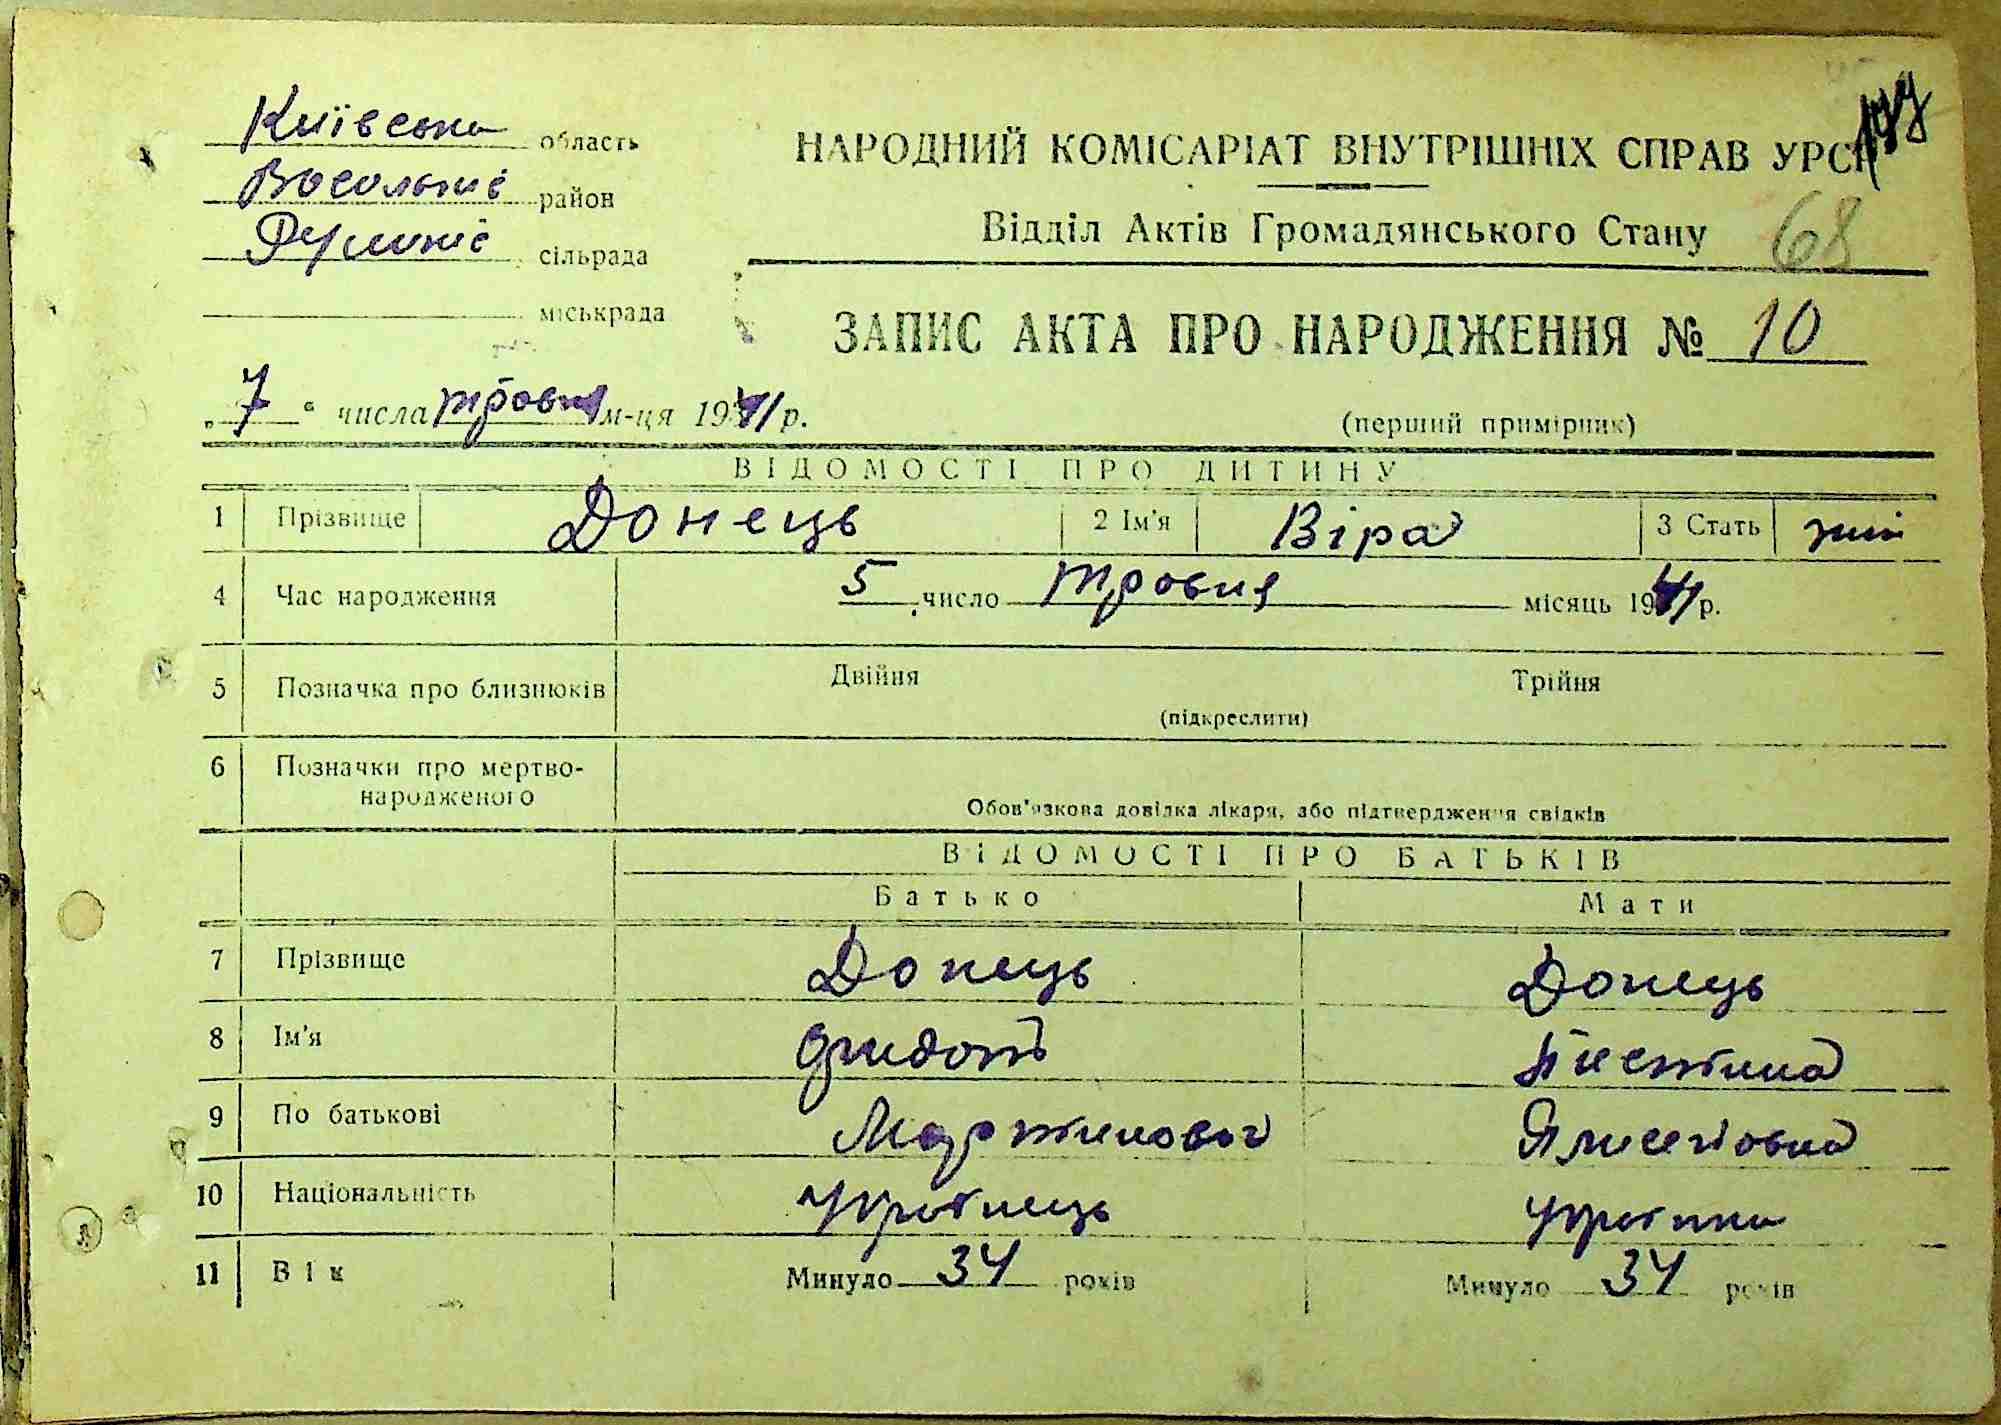 Київська область
НАРОДНИЙ КОМІСАРІАТ ВНУТРІШНІХ СПРАВ УРСР
район
Відділ Актів Громадянського Стану 68
сільрада
міськрада
ЗАПИС АКТА ПРО НАРОДЖЕННЯ № 10
„7“ числа травня м-ця 1941 р.
(перший примірник)
ВІДОМОСТІ ПРО ДИТИНУ
1 Прізвище Донець 2 Ім'я Віра 3 Стать жін
4 Час народження 5 число травня місяць 1941 р.
5 Позначка про близнюків Двійня Трійня
(підкреслити)
6 Позначки про мертво-
народженого
Обов'язкова довідка лікаря, або підтвердження свідків
ВІДОМОСТІ ПРО БАТЬКІВ
Батько Мати
7 Прізвище Донець Донець
8 Ім'я
9 По батькові Мартинович
10 Національність Українець Українка
11 Вік Минуло 34 років Минуло 34 років